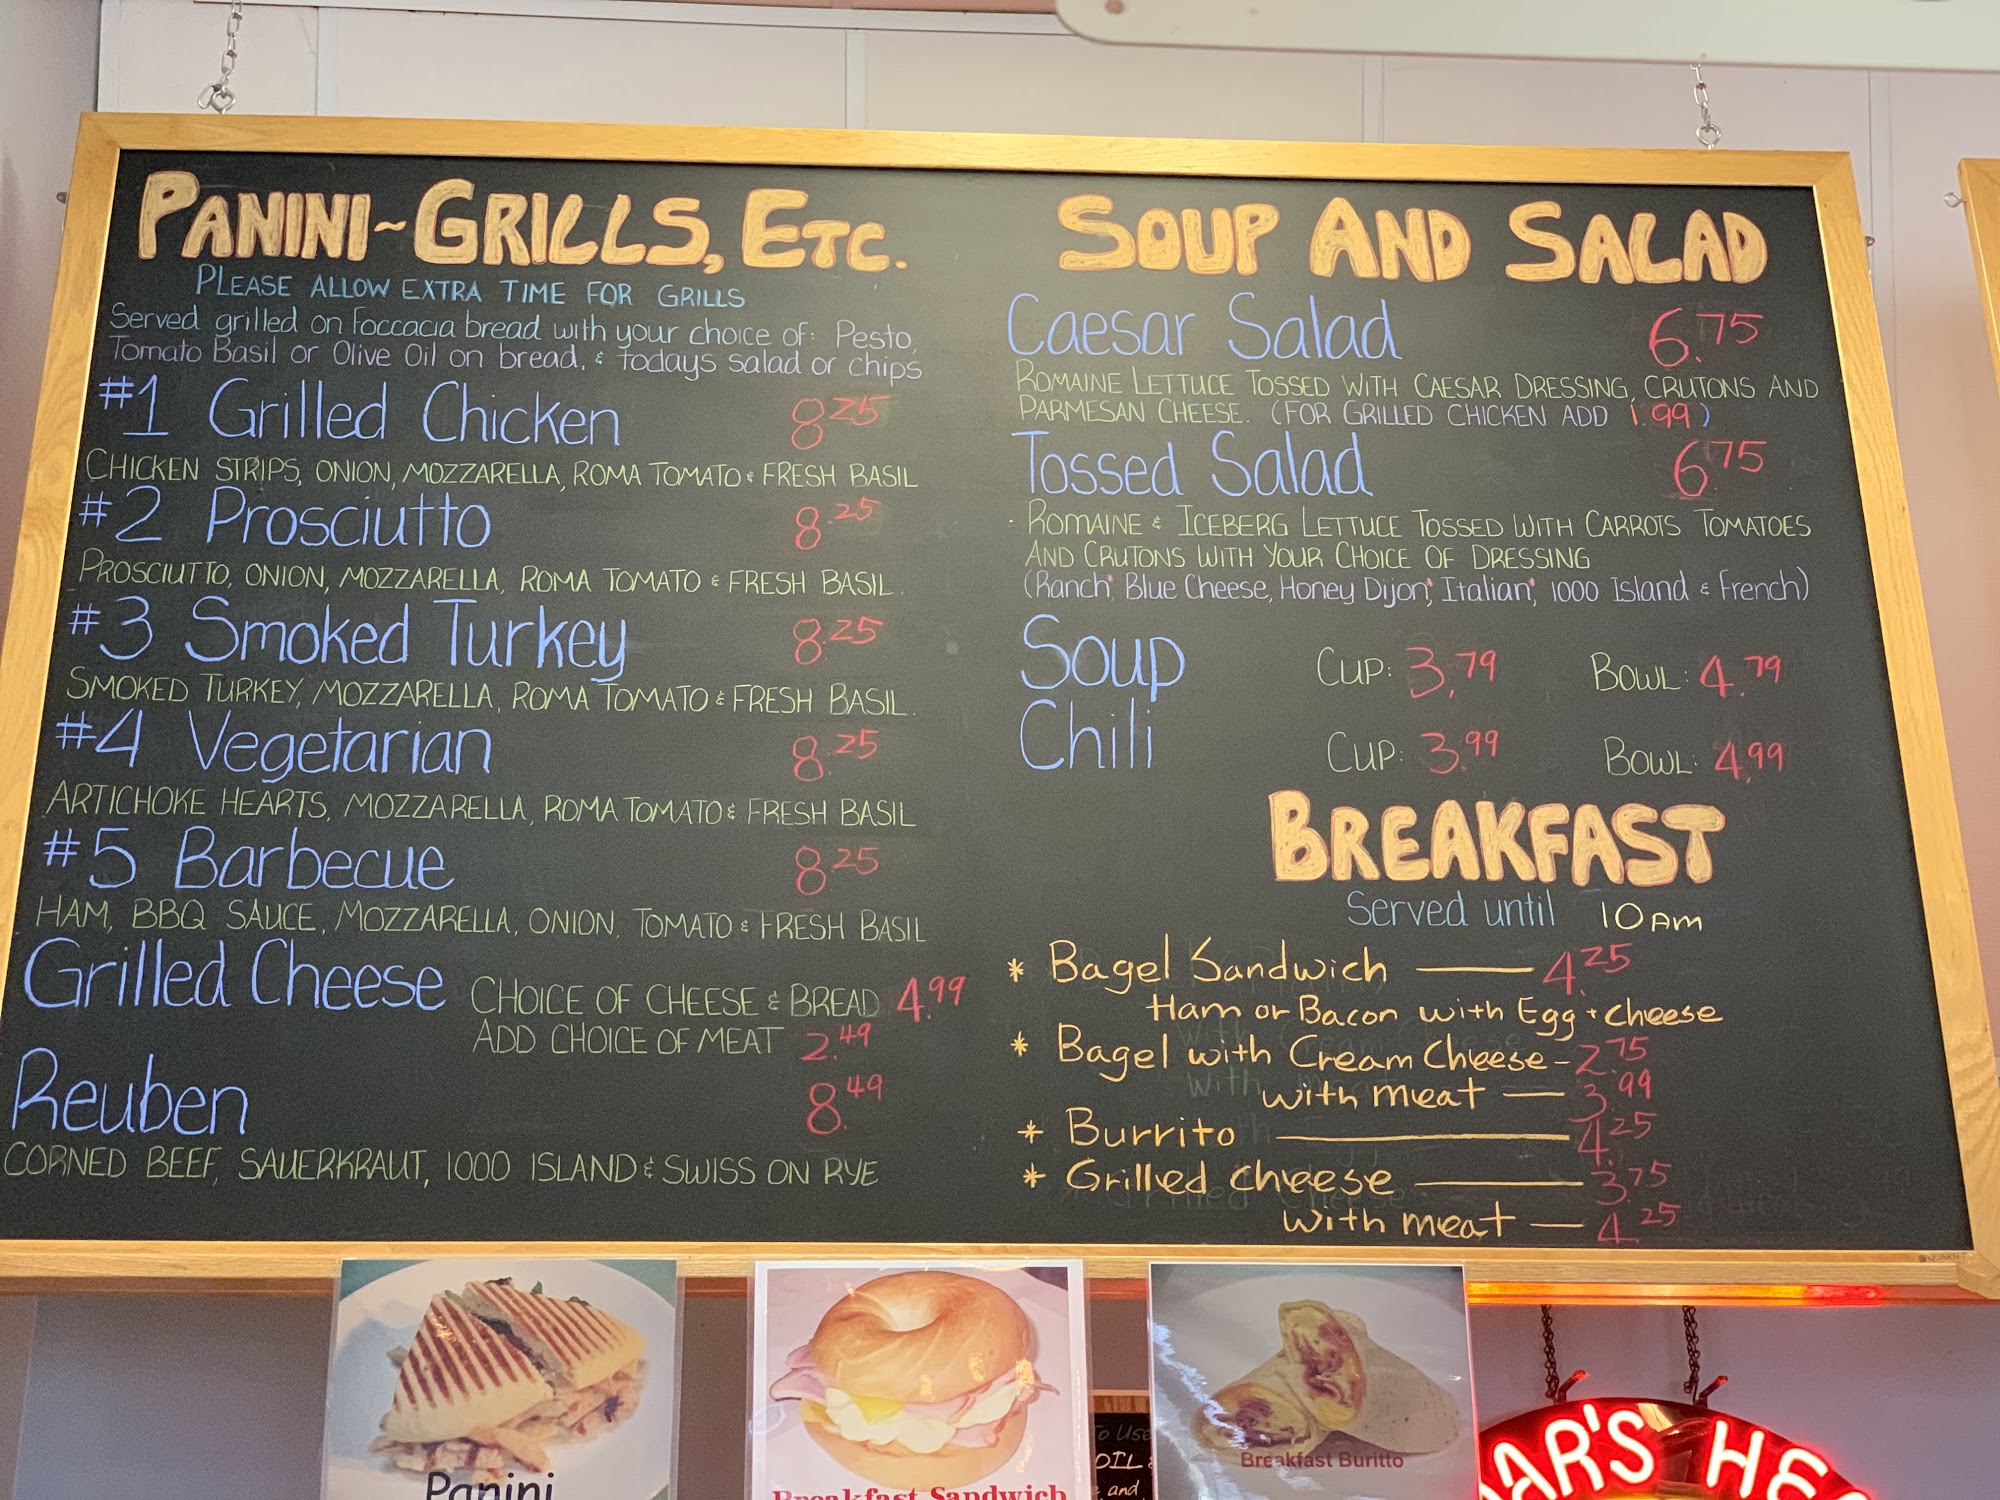 PANINI~GRILLS, ETC.
PLEASE ALLOW EXTRA TIME FOR GRILLS
Served grilled on Foccacia bread with your choice of: Pesto,
Tomato Basil or Olive Oil on bread, & todays salad or chips
#1 Grilled Chicken 8.25
CHICKEN STRIPS, ONION, MOZZARELLA, ROMA TOMATO & FRESH BASIL
#2 Prosciutto 8.25
PROSCIUTTO, ONION, MOZZARELLA, ROMA TOMATO & FRESH BASIL.
#3 Smoked Turkey 8.25
SMOKED TURKEY, MOZZARELLA, ROMA TOMATO & FRESH BASIL.
#4 Vegetarian 8.25
ARTICHOKE HEARTS, MOZZARELLA, ROMA TOMATO & FRESH BASIL
#5 Barbecue 8.25
HAM, BBQ SAUCE, MOZZARELLA, ONION, TOMATO & FRESH BASIL
Grilled Cheese CHOICE OF CHEESE & BREAD 4.99
ADD CHOICE OF MEAT 2.49
Reuben 8.49
CORNED BEEF, SAUERKRAUT, 1000 ISLAND & SWISS ON RYE
SOUP AND SALAD
Caesar Salad 6.75
ROMAINE LETTUCE TOSSED WITH CAESAR DRESSING, CRUTONS AND
PARMESAN CHEESE. (FOR GRILLED CHICKEN ADD 1.99)
Tossed Salad 6.75
ROMAINE & ICEBERG LETTUCE TOSSED WITH CARROTS TOMATOES
AND CRUTONS WITH YOUR CHOICE OF DRESSING
(Ranch*, Blue Cheese, Honey Dijon*, Italian*, 1000 Island & French)
Soup CUP: 3.79 BOWL: 4.79
Chili CUP: 3.99 BOWL: 4.99
BREAKFAST
Served until 10AM
* Bagel Sandwich — 4.25
Ham or Bacon with Egg + cheese
* Bagel with Cream Cheese - 2.75
with meat — 3.99
* Burrito — 4.25
* Grilled cheese — 3.75
with meat — 4.25
Panini
Breakfast Sandwich
Breakfast Buritto
To Use
OIL
and
AR'S HE